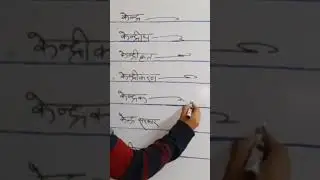 केन्द्र
केन्द्रीय
केन्द्रीकृत
केन्द्रीकरण
केन्द्रक
केन्द्र सरकार